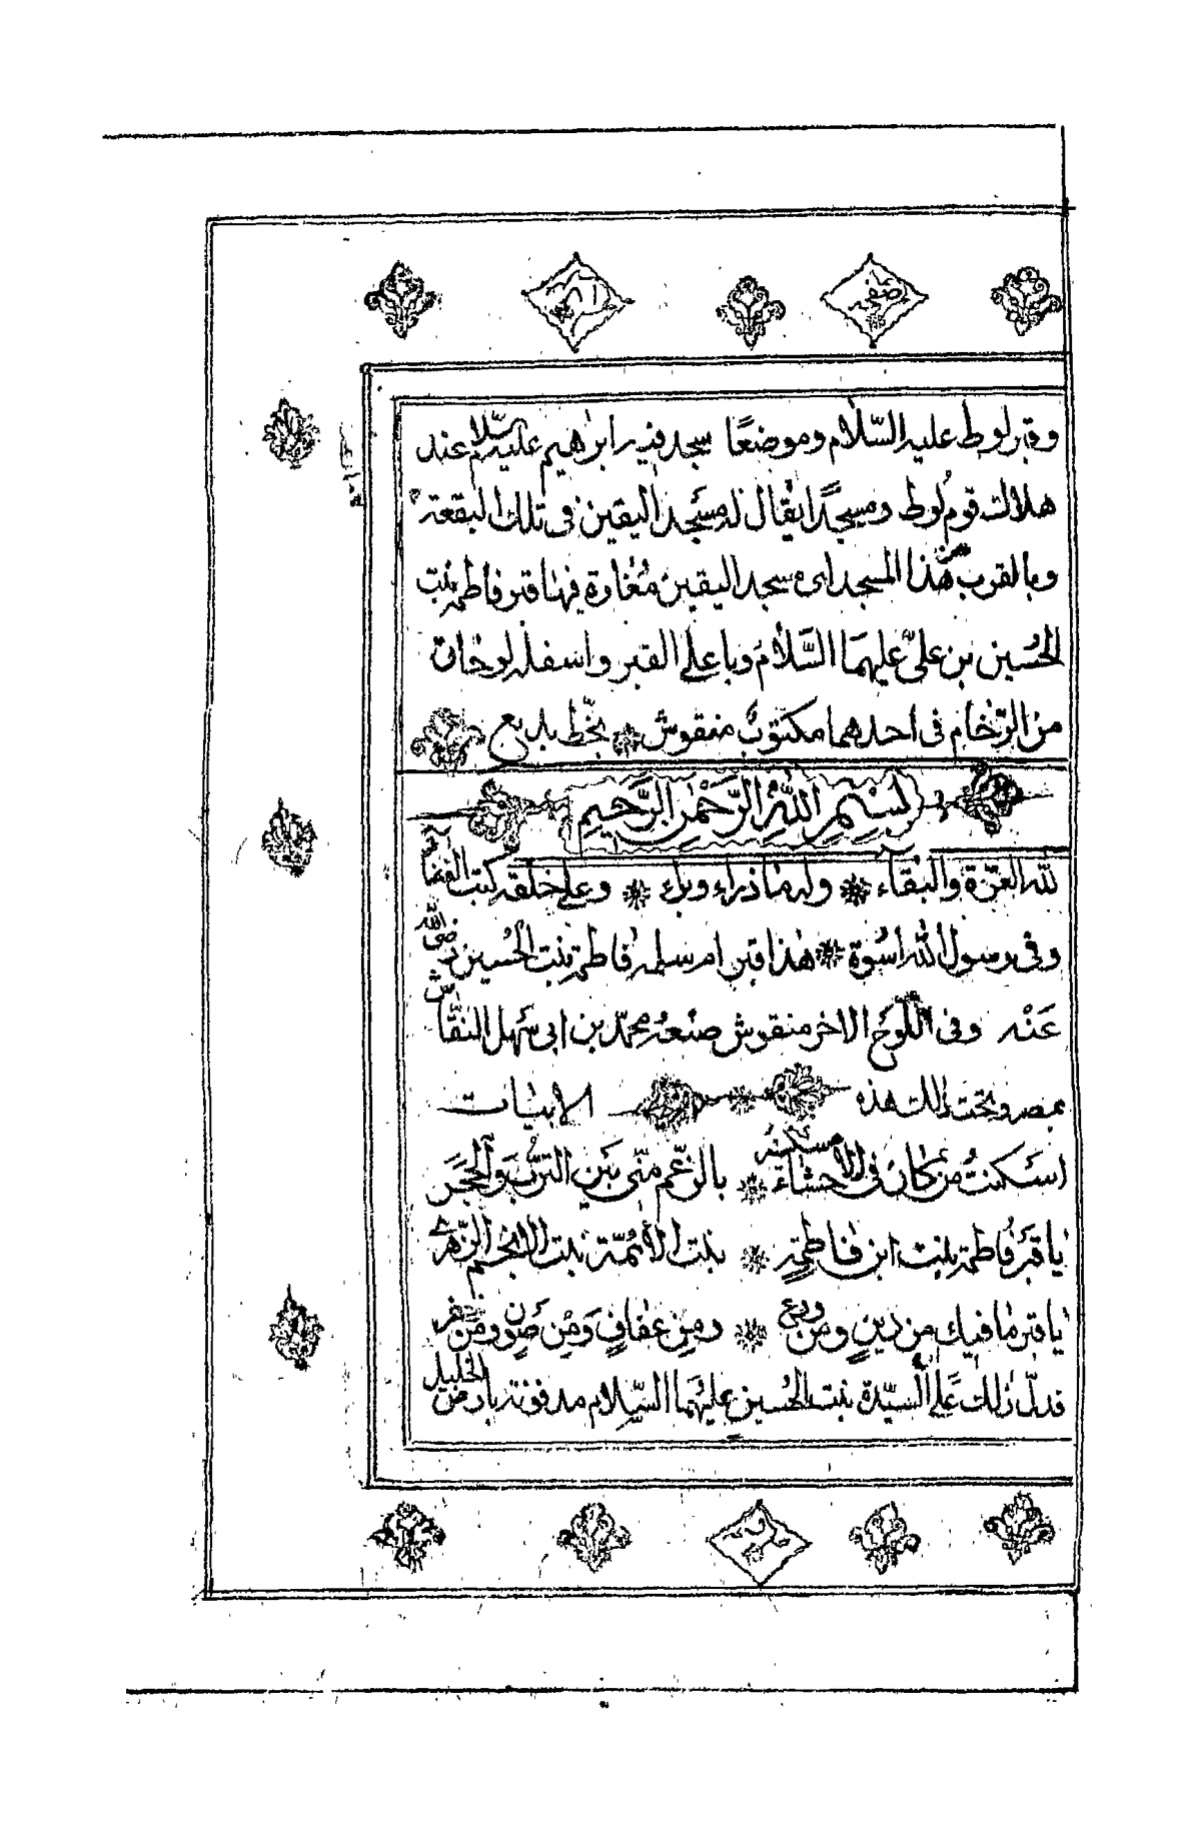 صفحه
وقبر لوط عليه السّلام وموضعًا سجد فيه ابراهيم عليه السّلام عند
هلاك قوم لوط ومسجدًا يقال له مسجد اليقين فى تلك البقعة
وبالقرب من هذا المسجد اى مسجد اليقين مغارة فيها قبر فاطمة بنت
الحُسين بن علىّ عليهمَا السَّلام وباعلى القبر واسفله لوحان
من الرّخام فى احدهما مكتوبٌ منقوش بخّط بديع
بِسْمِ اللّٰهِ الرَّحْمٰنِ الرَّحِيمِ
لله العزّة والبقآء وله ما ذراء وبراء وعلى خلقه كتب الفنآ
وفى رسول الله اسُوة هذا قبر ام سلمه فاطمة بنت الحُسين رضى الله
عَنْه وفى اللّوح الاخر منقوش صنعه محمّد بن ابى سَهل النقّاش
بمصر وتحت ذلك هذه الابيات
اسَكنتُ من كان فى الاحشاء مسكنه بالرّغم منّى بَين التُرب وَالحَجَر
يا قبَر فاطمة بنت ابن فاطمةٍ بنت الأئمّة بنت الانجم الزّهر
يا قبر ما فيك من دينٍ ومن ورع ومِن عفافٍ وَمِن صَونٍ ومن خفر
فدلّ ذلك عَلى السيّدة بنت الحُسين عليهَما السّلام مدفونة بارض الخليل